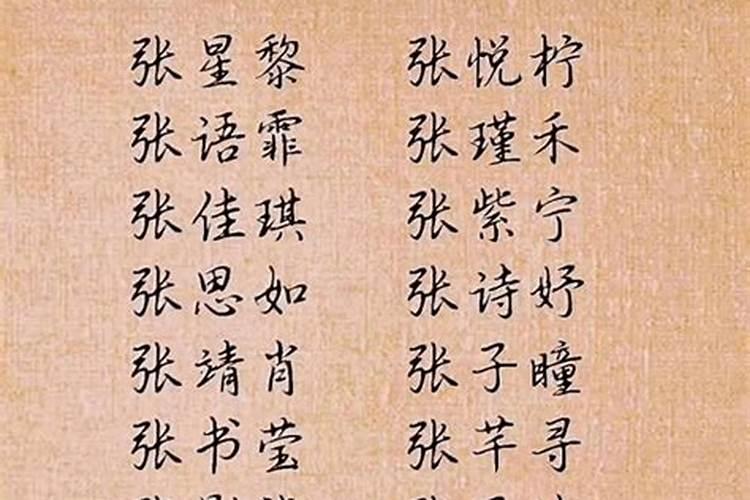 张星黎 张悦柠
张语霏 张瑾禾
张佳琪 张紫宁
张思如 张诗妤
张靖肖 张子瞳
张书莹 张芊寻